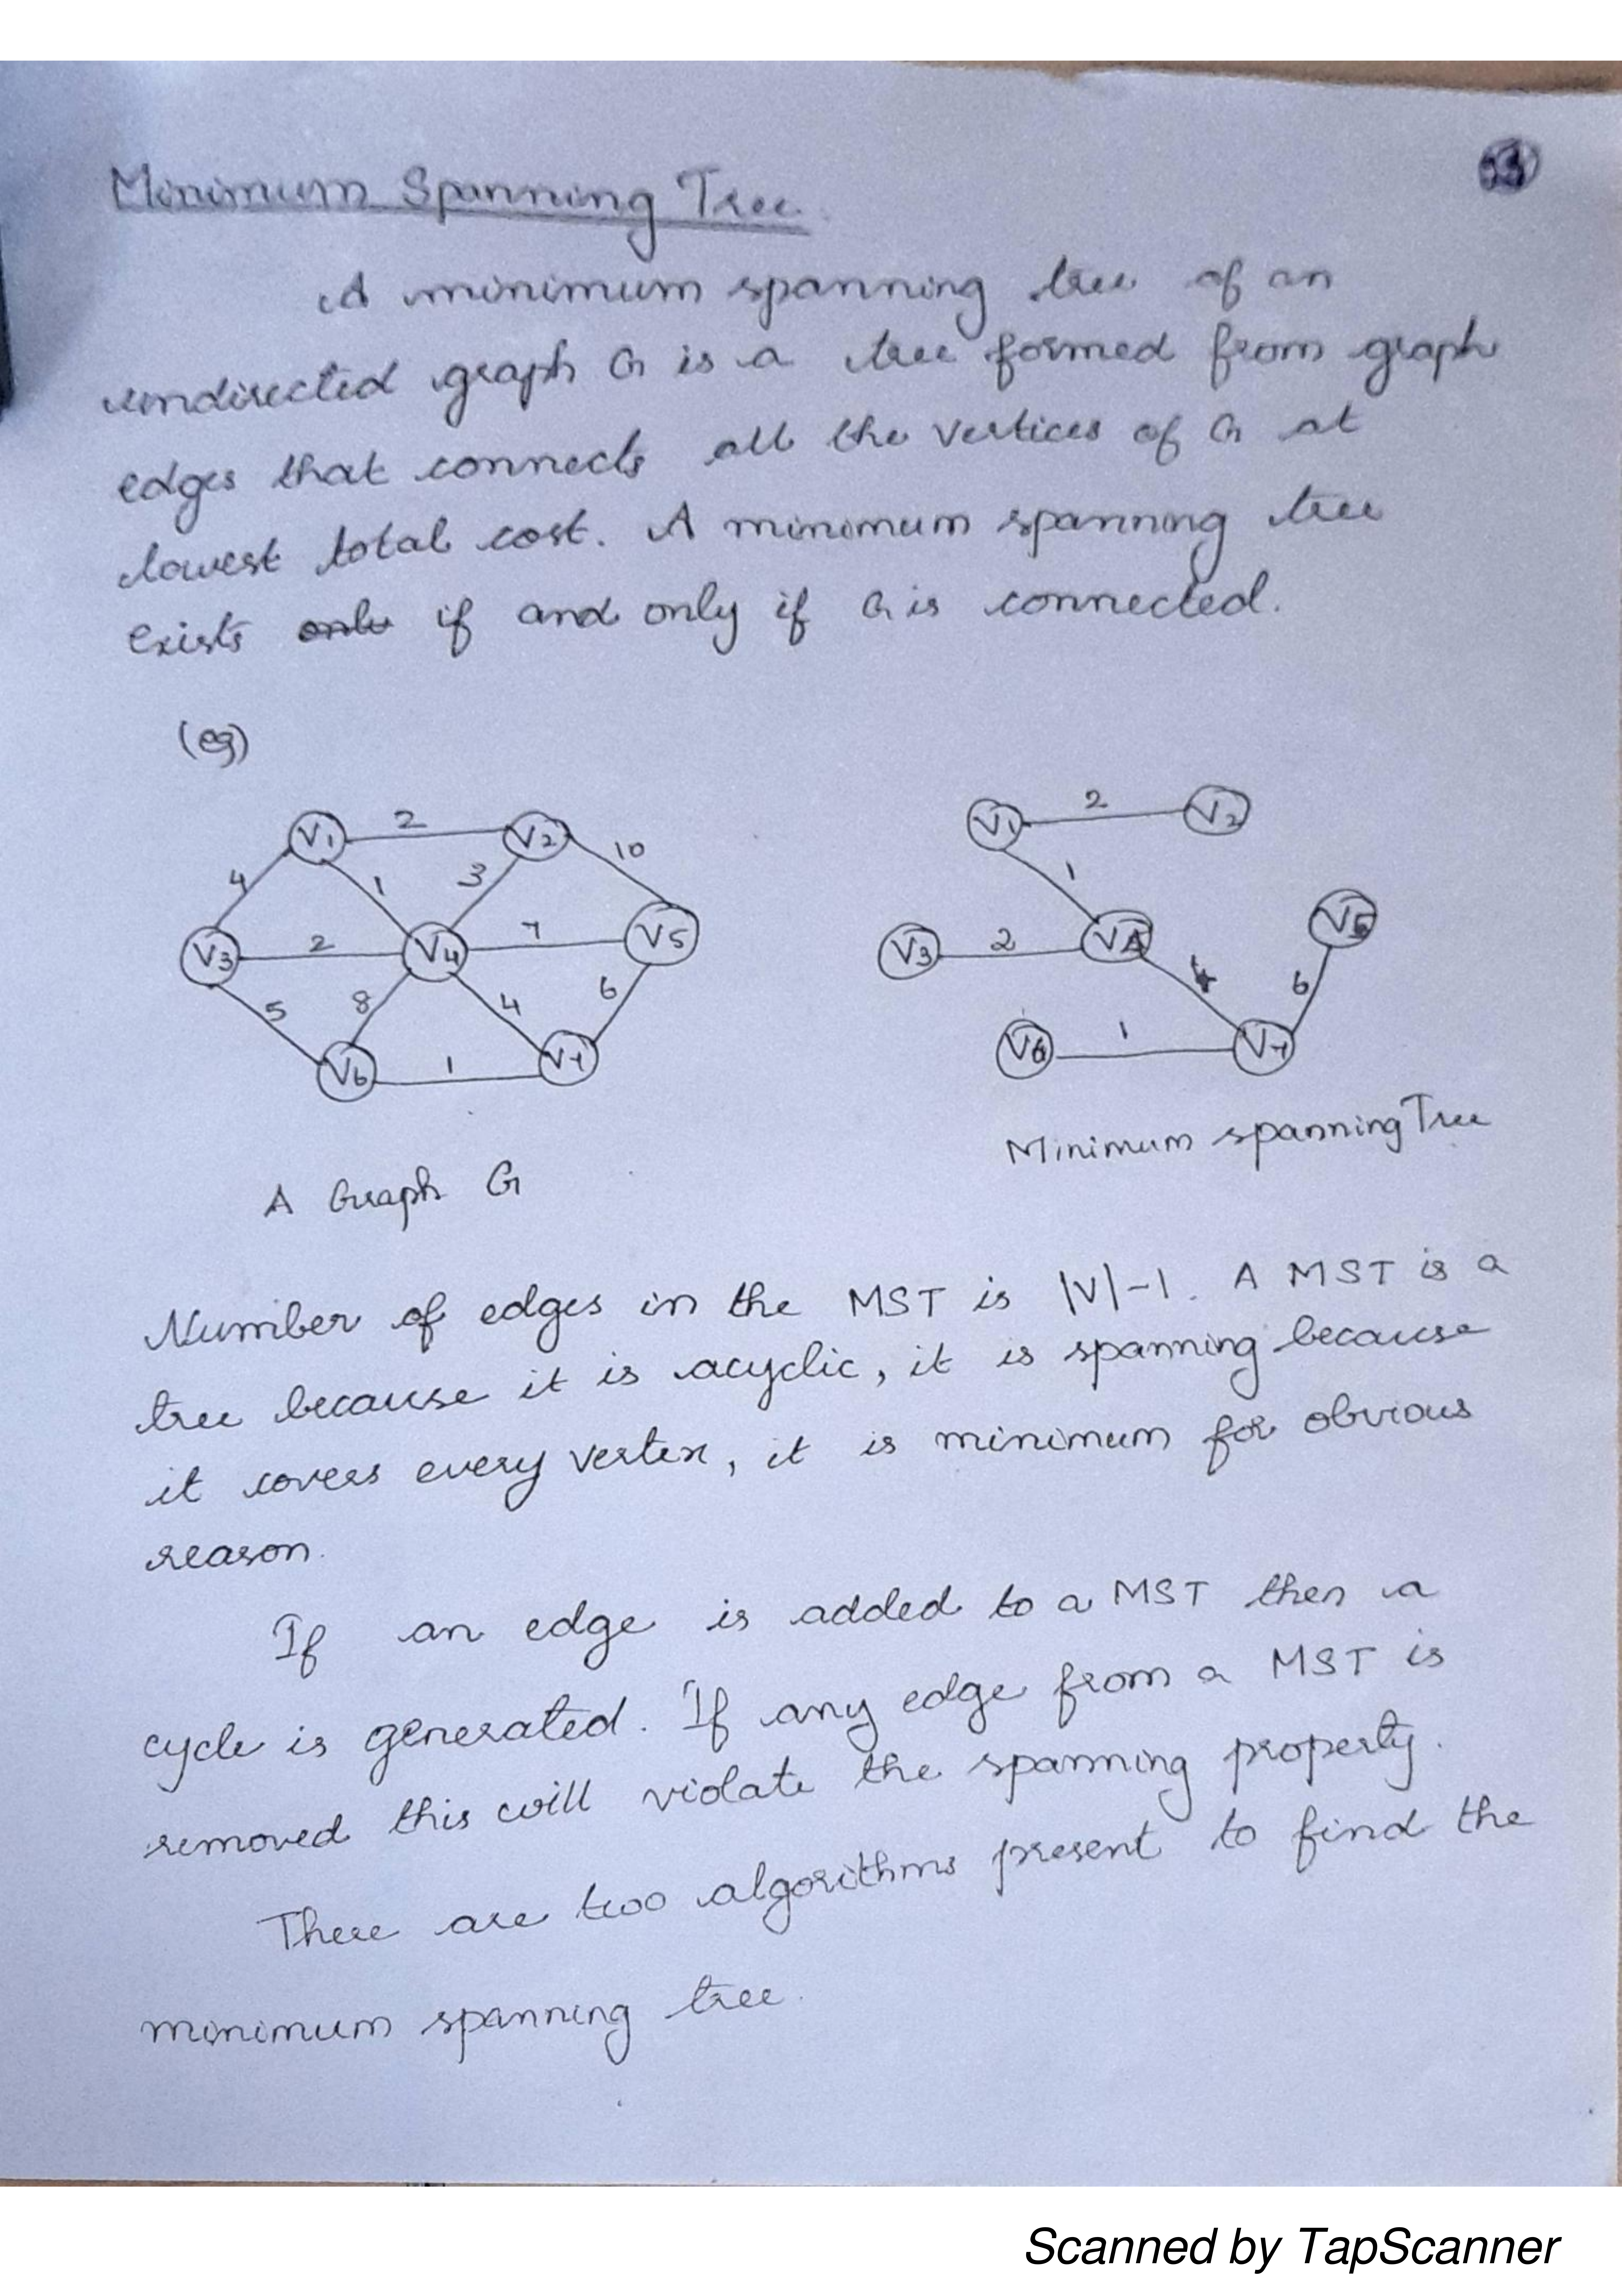 Minimum Spanning Tree.
A minimum spanning tree of an
undirected graph G is a tree formed from graph
edges that connects all the vertices of G at
lowest total cost. A minimum spanning tree
exists only if and only if G is connected.
(eg)
V1 2 V2 10
4 1 3
V3 2 V4 7 V5
5 8 4 6
V6 1 V7
A Graph G
V1 2 V2
1
V3 2 V4 V5
4 6
V6 1 V7
Minimum spanning Tree
Number of edges in the MST is |V|-1. A MST is a
tree because it is acyclic, it is spanning because
it covers every vertex, it is minimum for obvious
reason.
If an edge is added to a MST then a
cycle is generated. If any edge from a MST is
removed this will violate the spanning property.
There are two algorithms present to find the
minimum spanning tree.
Scanned by TapScanner